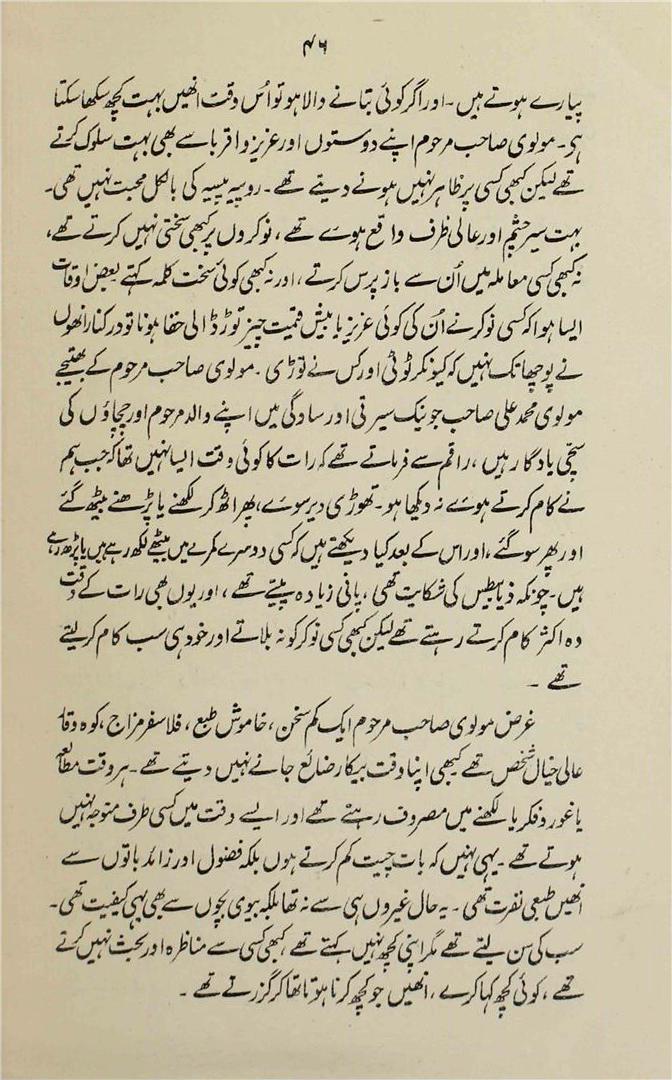 ۴۶
پیارے ہوتے ہیں ۔ اور اگر کوئی بتانے والا ہو تو اُس وقت انھیں بہت کچھ سکھا سکتا
ہی ۔ مولوی صاحب مرحوم اپنے دوستوں اور عزیز و اقربا سے بھی بہت سلوک کرتے
تھے لیکن کبھی کسی پر ظاہر نہیں ہونے دیتے تھے ۔ روپیہ پیسہ کی بالکل محبت نہیں تھی ۔
بہت سیر چشم اور عالی ظرف واقع ہوے تھے ، نوکروں پر کبھی سختی نہیں کرتے تھے ،
نہ کبھی کسی معاملہ میں اُن سے باز پرس کرتے ، اور نہ کبھی کوئی سخت کلمہ کہتے بعض اوقات
ایسا ہوا کہ کسی نوکر نے اُن کی کوئی عزیز یا بیش قیمت چیز توڑ ڈالی خفا ہونا تو درکنار انھوں
نے پوچھا تک نہیں کہ کیونکر ٹوٹی اور کس نے توڑی ۔ مولوی صاحب مرحوم کے بھتیجے
مولوی محمد علی صاحب جو نیک سیرتی اور سادگی میں اپنے والد مرحوم اور چچاؤں کی
سچی یادگار ہیں ، راقم سے فرماتے تھے کہ رات کا کوئی وقت ایسا نہیں تھا کہ جب ہم
نے کام کرتے ہوے نہ دیکھا ہو ۔ تھوڑی دیر سوے ، پھر اٹھ کر لکھنے یا پڑھنے بیٹھ گئے
اور پھر سو گئے ، اور اس کے بعد کیا دیکھتے ہیں کہ کسی دوسرے کمرے میں بیٹھے لکھ رہے ہیں یا پڑھ رہے
ہیں ۔ چونکہ ذیابطیس کی شکایت تھی ، پانی زیادہ پیتے تھے ، اور یوں بھی رات کے وقت
وہ اکثر کام کرتے رہتے تھے لیکن کبھی کسی نوکر کو نہ بلاتے اور خود ہی سب کام کر لیتے
تھے ۔
غرض مولوی صاحب مرحوم ایک کم سخن ، خاموش طبع ، فلاسفر مزاج ، کوہ وقار
عالی خیال شخص تھے کبھی اپنا وقت بیکار ضائع جانے نہیں دیتے تھے ۔ ہر وقت مطالعہ
یا غور و فکر یا لکھنے میں مصروف رہتے تھے اور ایسے وقت میں کسی طرف متوجہ نہیں
ہوتے تھے ۔ یہی نہیں کہ بات چیت کم کرتے ہوں بلکہ فضول اور زائد باتوں سے
انھیں طبعی نفرت تھی ۔ یہ حال غیروں ہی سے نہ تھا بلکہ بیوی بچوں سے بھی یہی کیفیت تھی ۔
سب کی سن لیتے تھے مگر اپنی کچھ نہیں کہتے تھے کبھی کسی سے مناظرہ اور بحث نہیں کرتے
تھے ، کوئی کچھ کہا کرے ، انھیں جو کچھ کرنا ہوتا تھا کر گزرتے تھے ۔